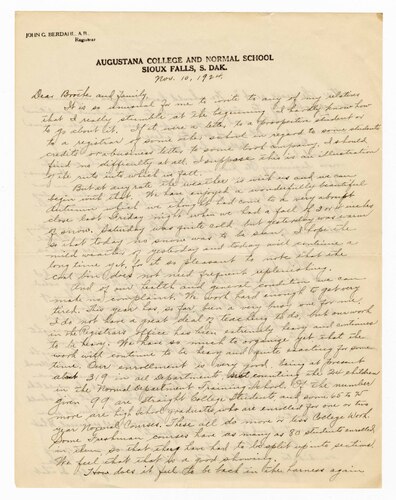 JOHN G. BERDAHL, A.B.,
Registrar
AUGUSTANA COLLEGE AND NORMAL SCHOOL
SIOUX FALLS, S. DAK.
Nov. 10, 1924.
Dear and family,
It is so unusual for me to write to any of my relatives
that I really stumble at the beginning. I hardly know how
to go about it. If it were a letter to a prospective student or
to a registrar of some other school in regard to some students
credits or a business letter to some book company, I should
find no difficulty at all. I suppose this is an illustration
of the ruts into which we fall.
But at any rate the weather is with us and we can
begin with that. We have enjoyed a wonderfully beautiful
Autumn which we thought had come to a very abrupt
close last Friday night when we had a fall of 3 or 4 inches
of snow. Saturday was quite cold but yesterday was warm
so that today no snow was to be seen. I hope the
mild weather of yesterday and today will continue a
long time yet, for it is so pleasant to note that the
coal bin does not need frequent replenishing.
And of our health and general condition we can
make no complaint. We work hard enough to get very
tired. This year has so far been a very busy one for me.
I do not have a great deal of teaching to do, but our work
in the Registrar's office has been extremely heavy and continues
to be heavy. We have so much to organize yet that the
work will continue to be heavy and quite exacting for some
time. Our enrollment is very good being at present
about 319 in all Departments not counting the children
in the Normal Department Training School. Of the number
given 79 are straight College Students and some 65 to 75
more are high school graduates who are enrolled for one or two
year Normal Courses. These all do more or less College Work.
Some Freshman courses have as many as 80 students enrolled
in them so that they have had to be split up into sections.
We feel that that is a good showing.
How does it feel to be back in the harness again